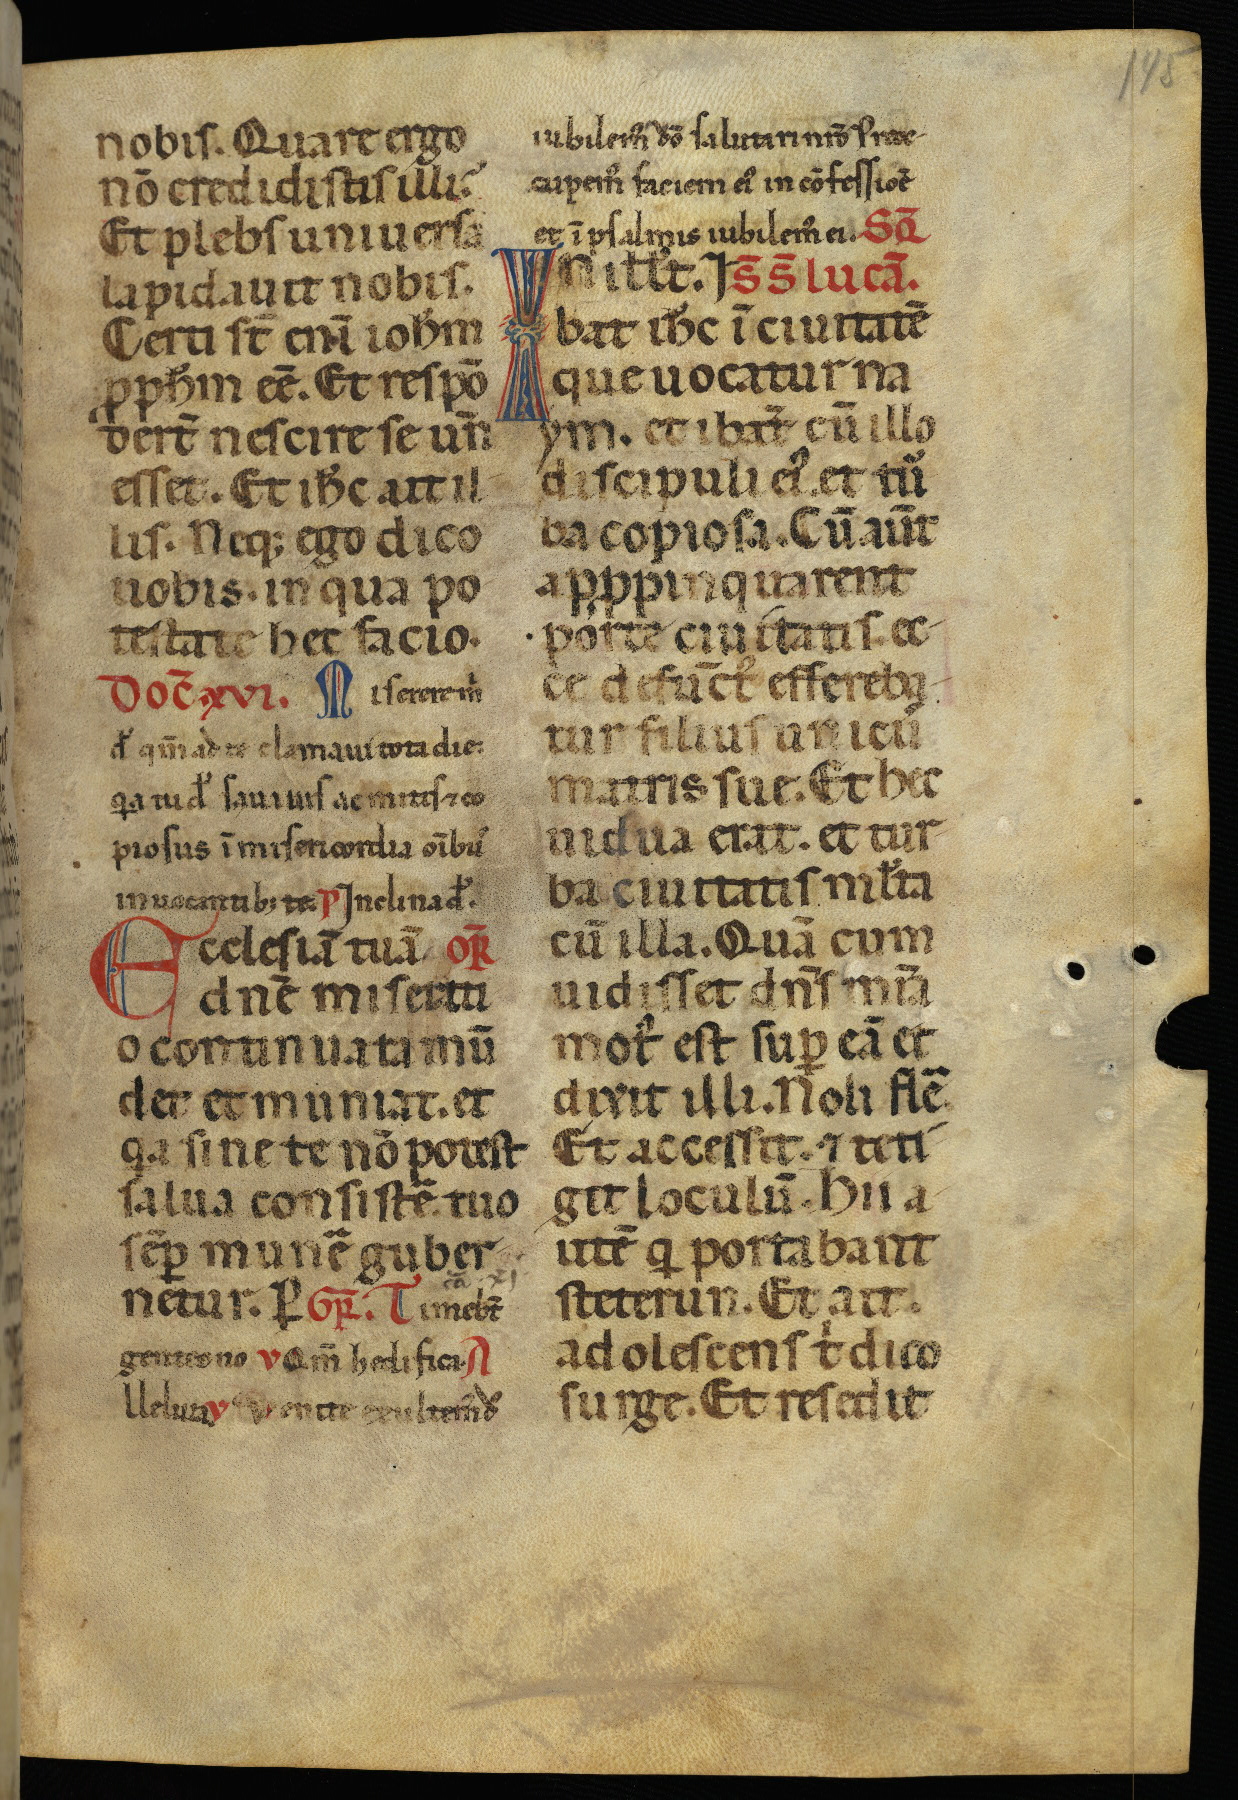 145
nobis. Quare ergo
nō credidistis illi.
Et plebs uniuersa
lapidauit nobis.
Certi st̄ eni̅ ioh̄m
ꝓph̄m eē. Et respō
dert̄ nescire se un̄
esset. Et ih̄c ait il
lis. Neq; ego dico
uobis. in qua po
testate hec facio.
Doc̄ xvi. Miserere m̄
d̄ qm̄ ad te clamaui tota die.
qa tu d̄ sauuis ac mitis ⁊ co
piosus ī misericordia oībus
inuocantib; te. P Inclina d̄.
Ecclesiā tuā OR̄
dn̄e miserati
o continuata mū
det et muniat. et
qa sine te nō potest
salua consistē. tuo
sēp munē guber
netur. P GR̄. Timebt̄
gentes no V Qm̄ hedifica. A
lleluia V Venite exultem̄ d̄
iubilem̄ dō salutari nrō Preoc
cupem̄ faciem ei in cōfessiōe
et ī psalmis iubilem̄ ei. SQ̄
IN ill̄ t. IS̄ S̄ lucā.
bat ih̄c ī ciuitatē
que uocatur na
ym. et ibāt cū illo
discipuli ei. et tur
ba copiosa. Cū aūt
aꝓpinquarent
porte ciuitatis. ec
ce defūct̄ efferebą
tur filius unicū
matris sue. Et hec
uidua erat. et tur
ba ciuitatis ml̄ta
cū illa. Quā cum
uidisset dn̄s mīa
mot̄ est suꝑ eā et
dixit illi. Noli flē.
Et accessit. ⁊ teti
git loculū. Hii a
utē q portabant
steterun. Et ait.
adolescens t̄ dico
surge. Et resedit